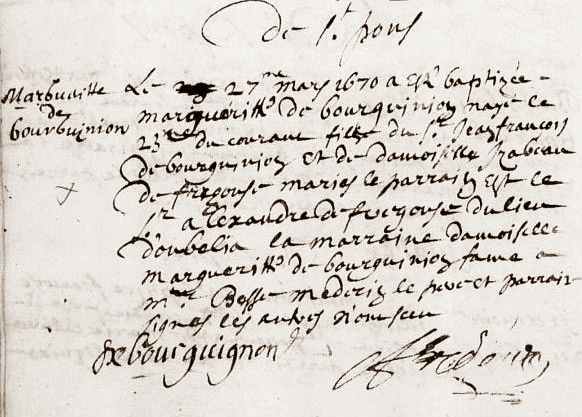 de s.t pons
Marguritte
de
bourguinion
Le 27me mars 1670 a esté baptizée
margueritte de bourguinion naye le
23me du courant fille du sr Jean francois
de bourguinion et de damoiselle Izabeau
de maries le parrain est le
sr alexandre de du lieu
doubelia la marraine damoiselle
margueritte de bourguinion fame a
mr Besse medecin le pere et parrain
signes les autres n'ont sceu
De bourguignon